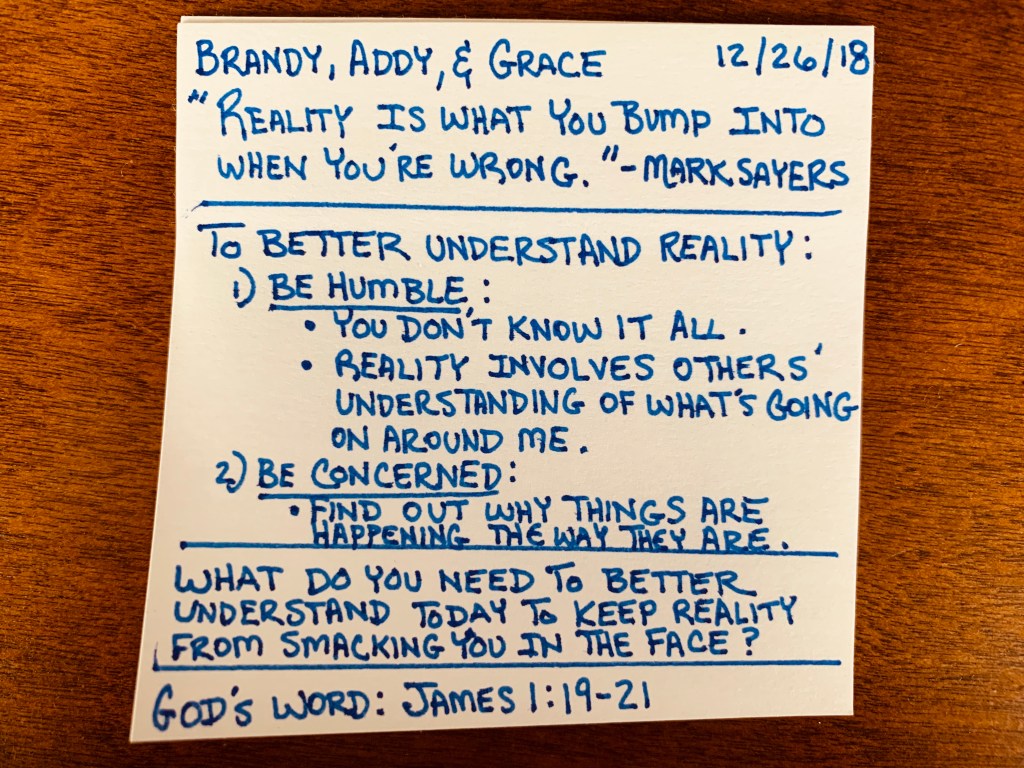 BRANDY, ADDY, & GRACE 12/26/18
"REALITY IS WHAT YOU BUMP INTO
WHEN YOU'RE WRONG." - MARK SAYERS
TO BETTER UNDERSTAND REALITY:
1) BE HUMBLE:
• YOU DON'T KNOW IT ALL.
• REALITY INVOLVES OTHERS'
UNDERSTANDING OF WHAT'S GOING
ON AROUND ME.
2) BE CONCERNED:
• FIND OUT WHY THINGS ARE
HAPPENING THE WAY THEY ARE.
WHAT DO YOU NEED TO BETTER
UNDERSTAND TODAY TO KEEP REALITY
FROM SMACKING YOU IN THE FACE?
GOD'S WORD: JAMES 1:19-21